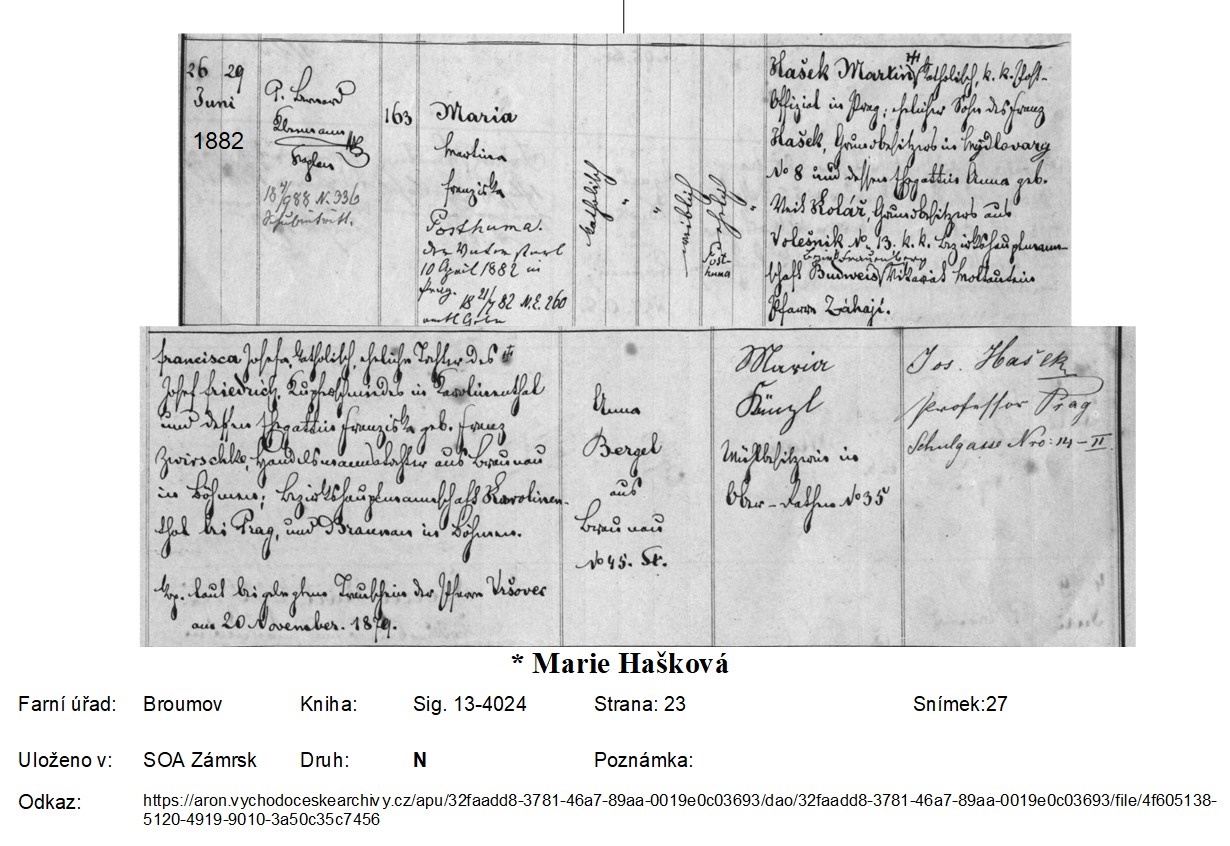 26 29
Juni
1882
P. Bernard
Kaplan
18 88 N. 936
163
Maria
Martina
Franziska
Posthuma.
der Vater starb
10 April 1882 in
Prag. 18 21/7 82 N.E. 260
katholisch
"
"
weiblich
ehelich
Post-
huma
"
Hašek Martin katholisch, k. k. Post-
Offizial in Prag, ehelicher Sohn des Franz
Hašek, Grundbesitzers in Mydlovary
No 8 und dessen Ehegattin Anna geb.
Veit Kolář, Grundbesitzers aus
Volešnik No 13. k. k. Bezirkshauptmann-
Bezirk Frauenberg
schaft Budweis, Vikariat Moldautein
Pfarre Záhaji.
Francisca Josefa, katholisch, eheliche Tochter des
Josef Friedrich, Kupferschmiedes in Karolinenthal
und dessen Ehegattin Franziska geb. Franz
Zwirschke, Handelsmannstochter aus Braunau
in Böhmen; Bezirkshauptmannschaft Karolinen-
thal bei Prag, und Braunau in Böhmen.
Cop. laut beigelegtem Trauschein der Pfarre Vršovec
am 20 November. 1879.
Anna
Bergel
aus
Braunau
No 45. St.
Maria
Künzl
Mühlbesitzerin in
Ober-Dathen No 35
Jos. Hašek
Professor Prag
Schulgasse Nro: 14-II.
* Marie Hašková
Farní úřad: Broumov Kniha: Sig. 13-4024 Strana: 23 Snímek:27
Uloženo v: SOA Zámrsk Druh: N Poznámka:
Odkaz: https://aron.vychodoceskearchivy.cz/apu/32faadd8-3781-46a7-89aa-0019e0c03693/dao/32faadd8-3781-46a7-89aa-0019e0c03693/file/4f605138-
5120-4919-9010-3a50c35c7456